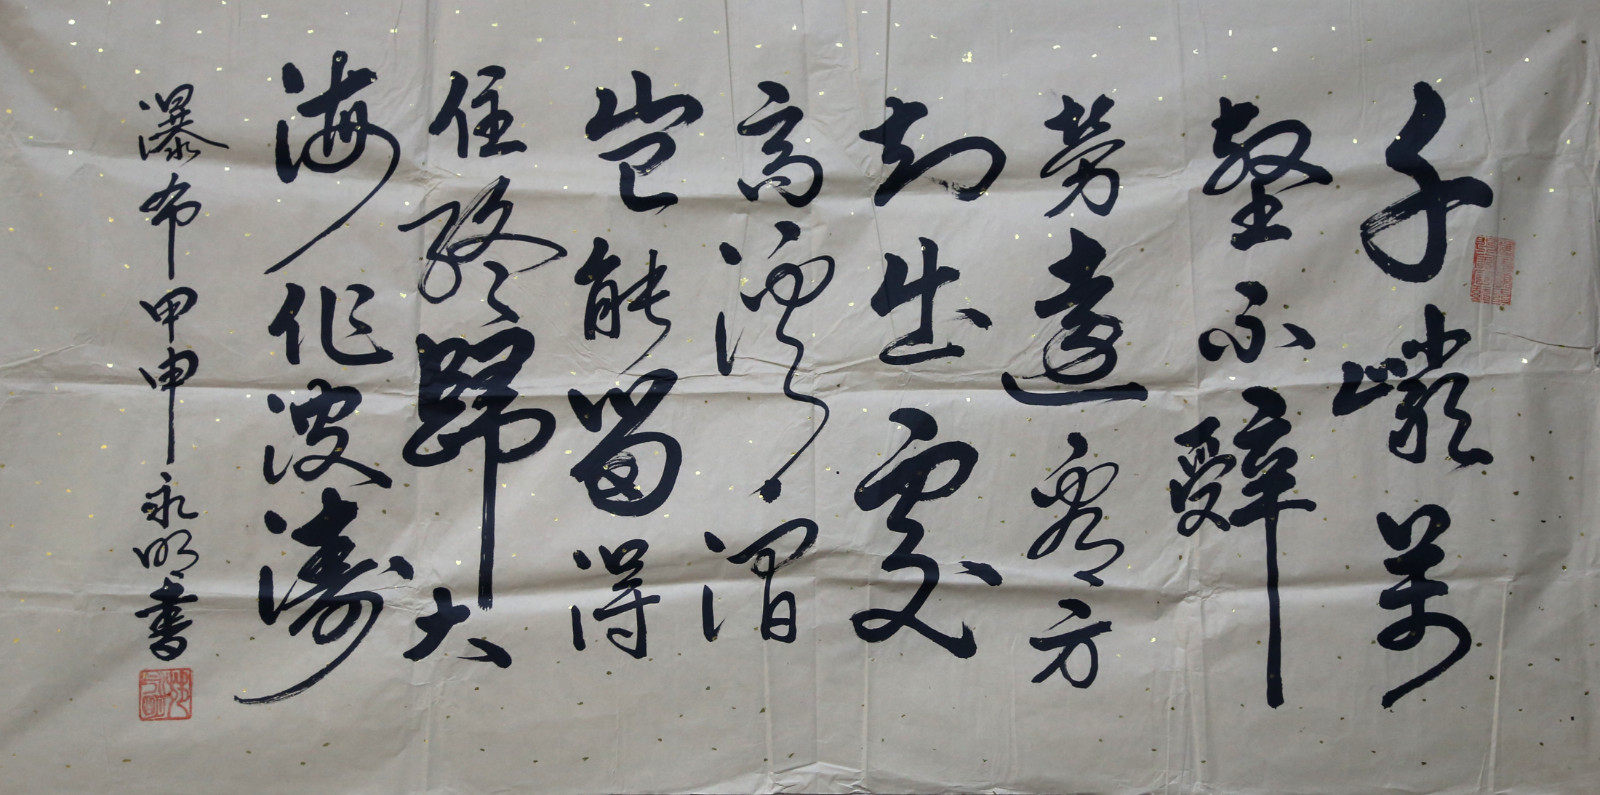 千巖萬
壑不辭
勞遠看方
知出處
高溪澗
豈能留得
住終歸大
海作波濤
瀑布甲申永明書